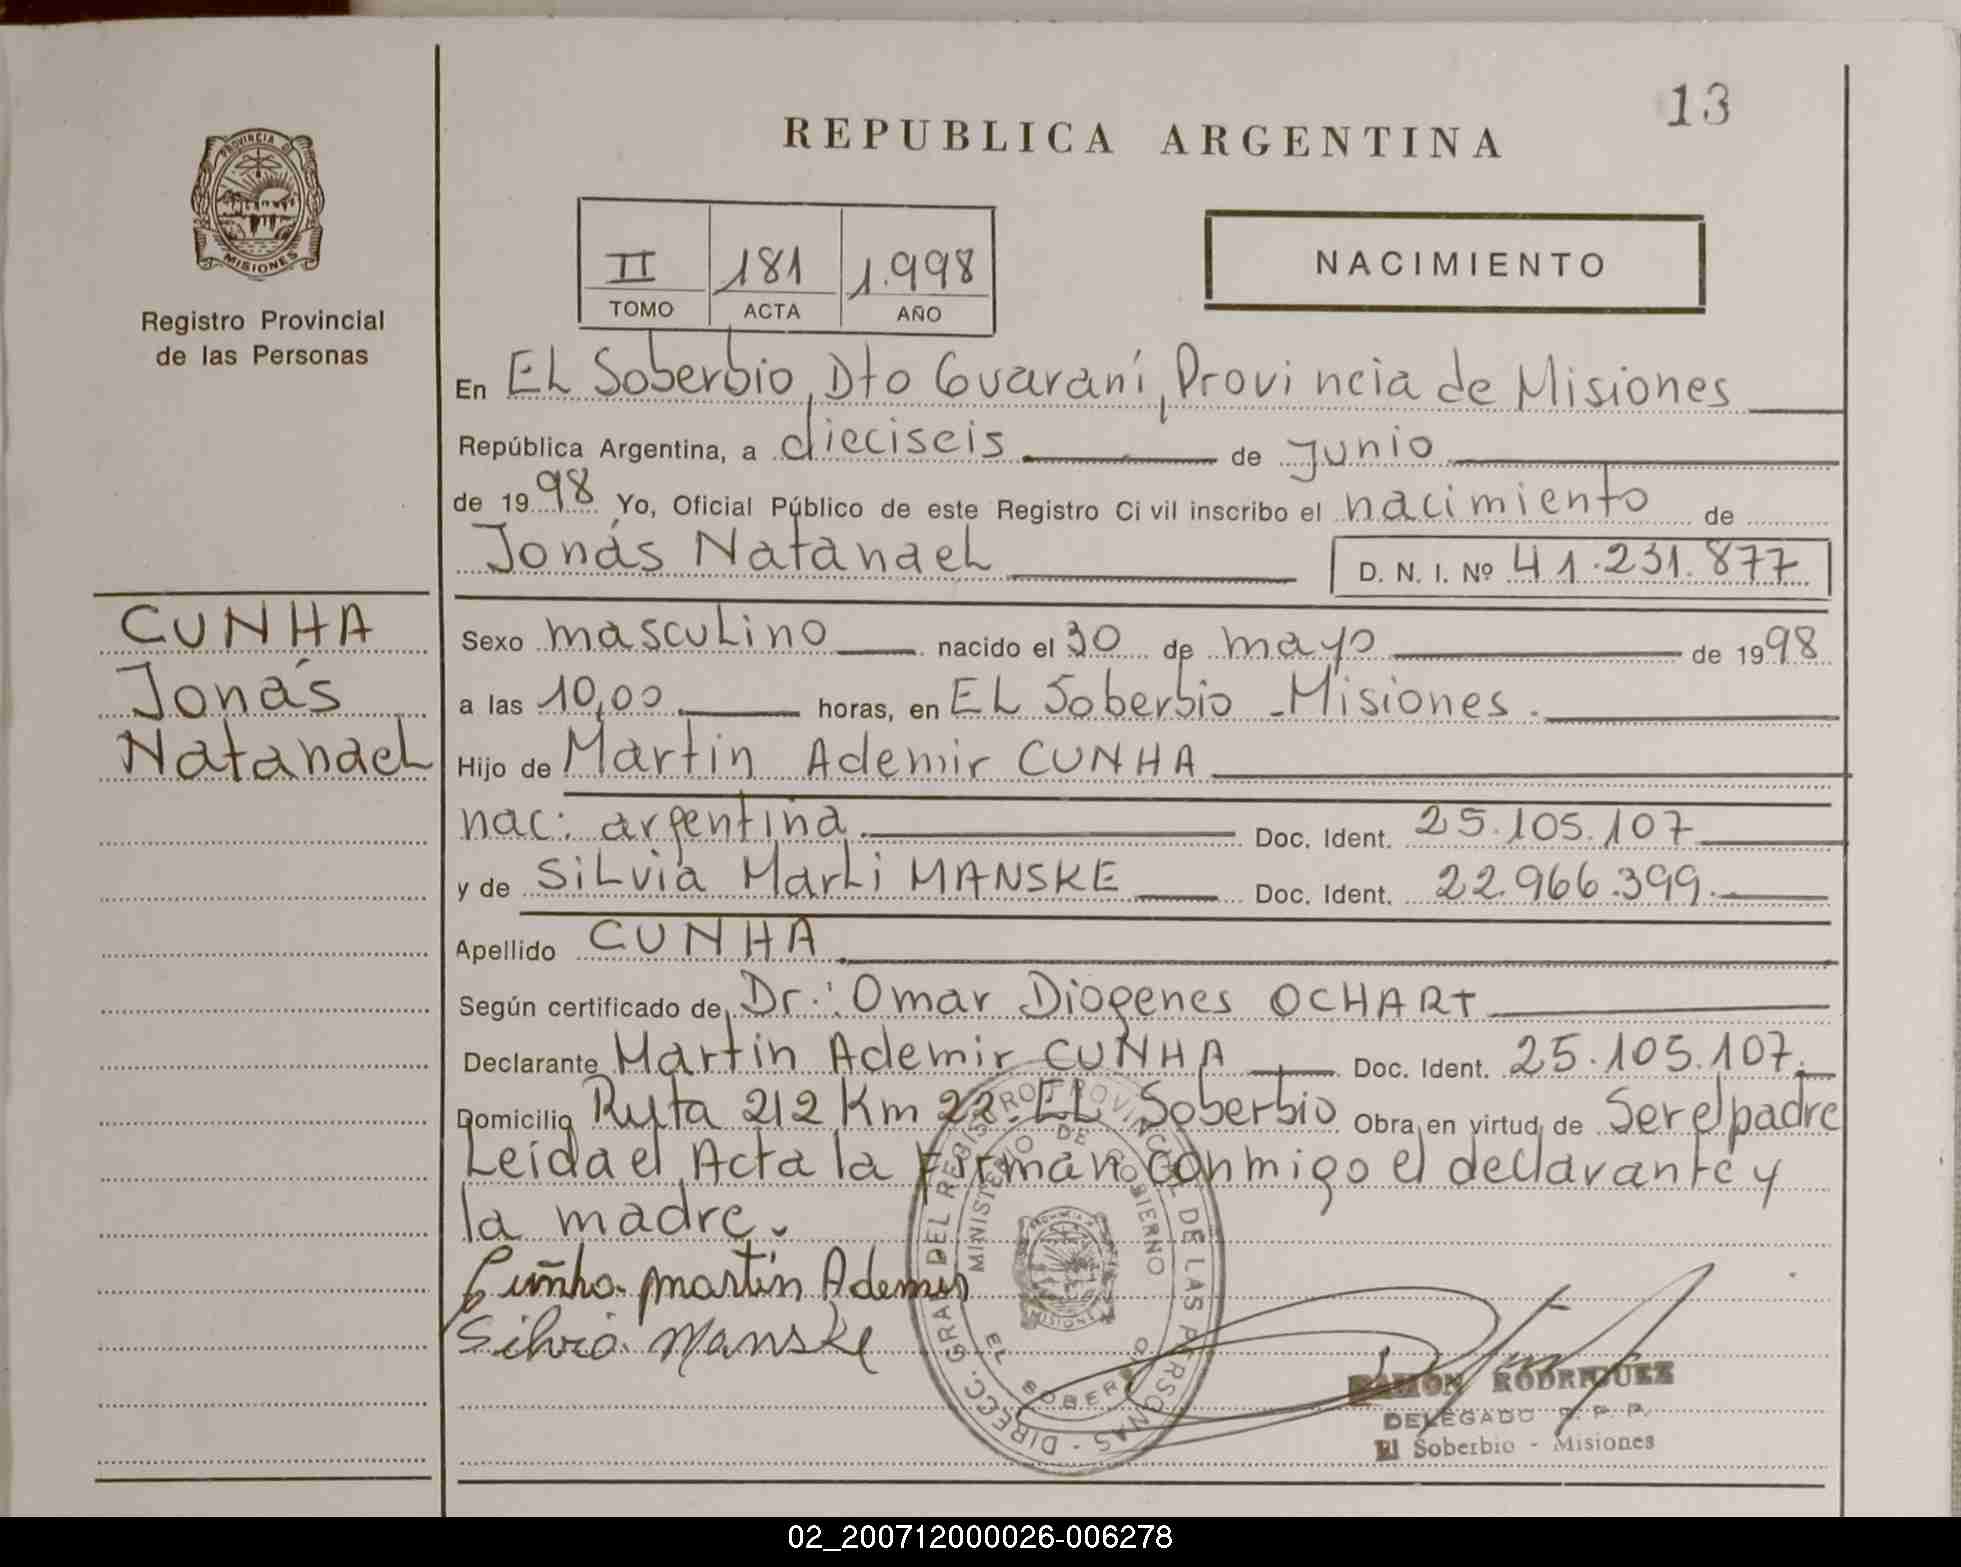 13
REPUBLICA ARGENTINA
PROVINCIA D
MISIONES
Registro Provincial
de las Personas
II 181 1.998
TOMO ACTA AÑO
NACIMIENTO
En EL Soberbio, Dto Guaraní, Provincia de Misiones
República Argentina, a dieciseis de junio
de 1998 Yo, Oficial Público de este Registro Civil inscribo el nacimiento de
Jonás Natanael D. N. I. Nº 41.231.877
CUNHA
Jonás
Natanael
Sexo masculino nacido el 30 de mayo de 1998
a las 10,00 horas, en EL Soberbio - Misiones.
Hijo de Martin Ademir CUNHA
nac: argentina Doc. Ident. 25.105.107
y de Silvia Marli MANSKE Doc. Ident. 22.966.399.
Apellido CUNHA
Según certificado de Dr.: Omar Diogenes OCHART
Declarante Martin Ademir CUNHA Doc. Ident. 25.105.107.
Domicilio Ruta 212 Km 22 - EL Soberbio Obra en virtud de Ser el padre
Leída el Acta la firman conmigo el declarante y
la madre.
Cunha martin Ademir
Silvia Manske
DIRECC. GRAL DEL REGISTRO PROVINCIAL DE LAS PERSONAS
MINISTERIO DE GOBIERNO
EL SOBERBIO
MISIONES
RAMÓN RODRIGUEZ
DELEGADO R. P. P.
El Soberbio - Misiones
02_200712000026-006278